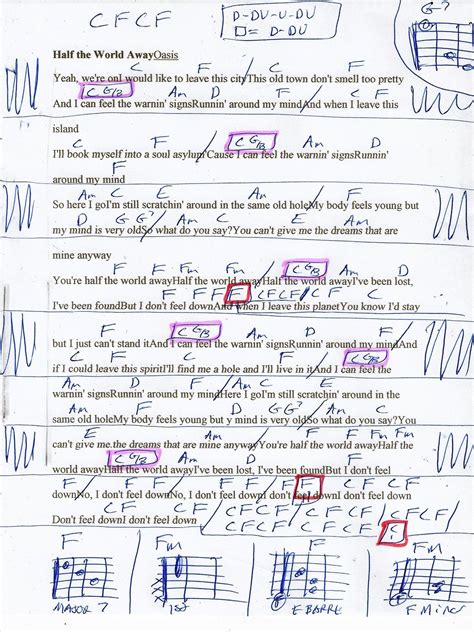 C F C F
D-DU-U-DU
□= D-DU
G7
Half the World AwayOasis
C F C F
Yeah, we're onI would like to leave this cityThis old town don't smell too pretty
C G/B Am D F
And I can feel the warnin' signsRunnin' around my mindAnd when I leave this
island
C F C G/B Am D
I'll book myself into a soul asylum'Cause I can feel the warnin' signsRunnin'
F
around my mind
Am C E Am C F
So here I goI'm still scratchin' around in the same old holeMy body feels young but
D G G7 Am C E Am
my mind is very oldSo what do you say?You can't give me the dreams that are
mine anyway
F F Fm Fm C G/B Am D
You're half the world awayHalf the world awayHalf the world awayI've been lost,
F F F F CFCF CF C
I've been foundBut I don't feel downAnd when I leave this planetYou know I'd stay
F C G/B Am D F C
but I just can't stand itAnd I can feel the warnin' signsRunnin' around my mindAnd
F C F C G/B
if I could leave this spiritI'll find me a hole and I'll live in itAnd I can feel the
Am D F Am C E
warnin' signsRunnin' around my mindHere I goI'm still scratchin' around in the
Am C F D G G7 Am C
same old holeMy body feels young but y mind is very oldSo what do you say?You
E Am F F Fm Fm
can't give me.the dreams that are mine anywayYou're half the world awayHalf the
C G/B Am D F F
world awayHalf the world awayI've been lost, I've been foundBut I don't feel
F F F CF CF CF
downNo, I don't feel downNo, I don't feel downI don't feel downI don't feel down
CF CF
Don't feel downI don't feel down
CFCF CFCF CFCF
CFCF CFCF C
F Fm F Fm
MAJOR 7 1st E BARRE F MINOR